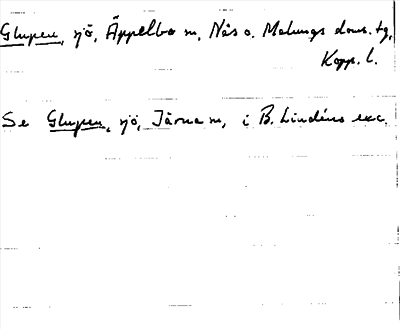 Glupen, sjö, Äppelbo sn, Nås o. Malungs doms. tg,
Kopp. l.
Se Glupen, sjö, Järna sn, i B. Lindéns exc.